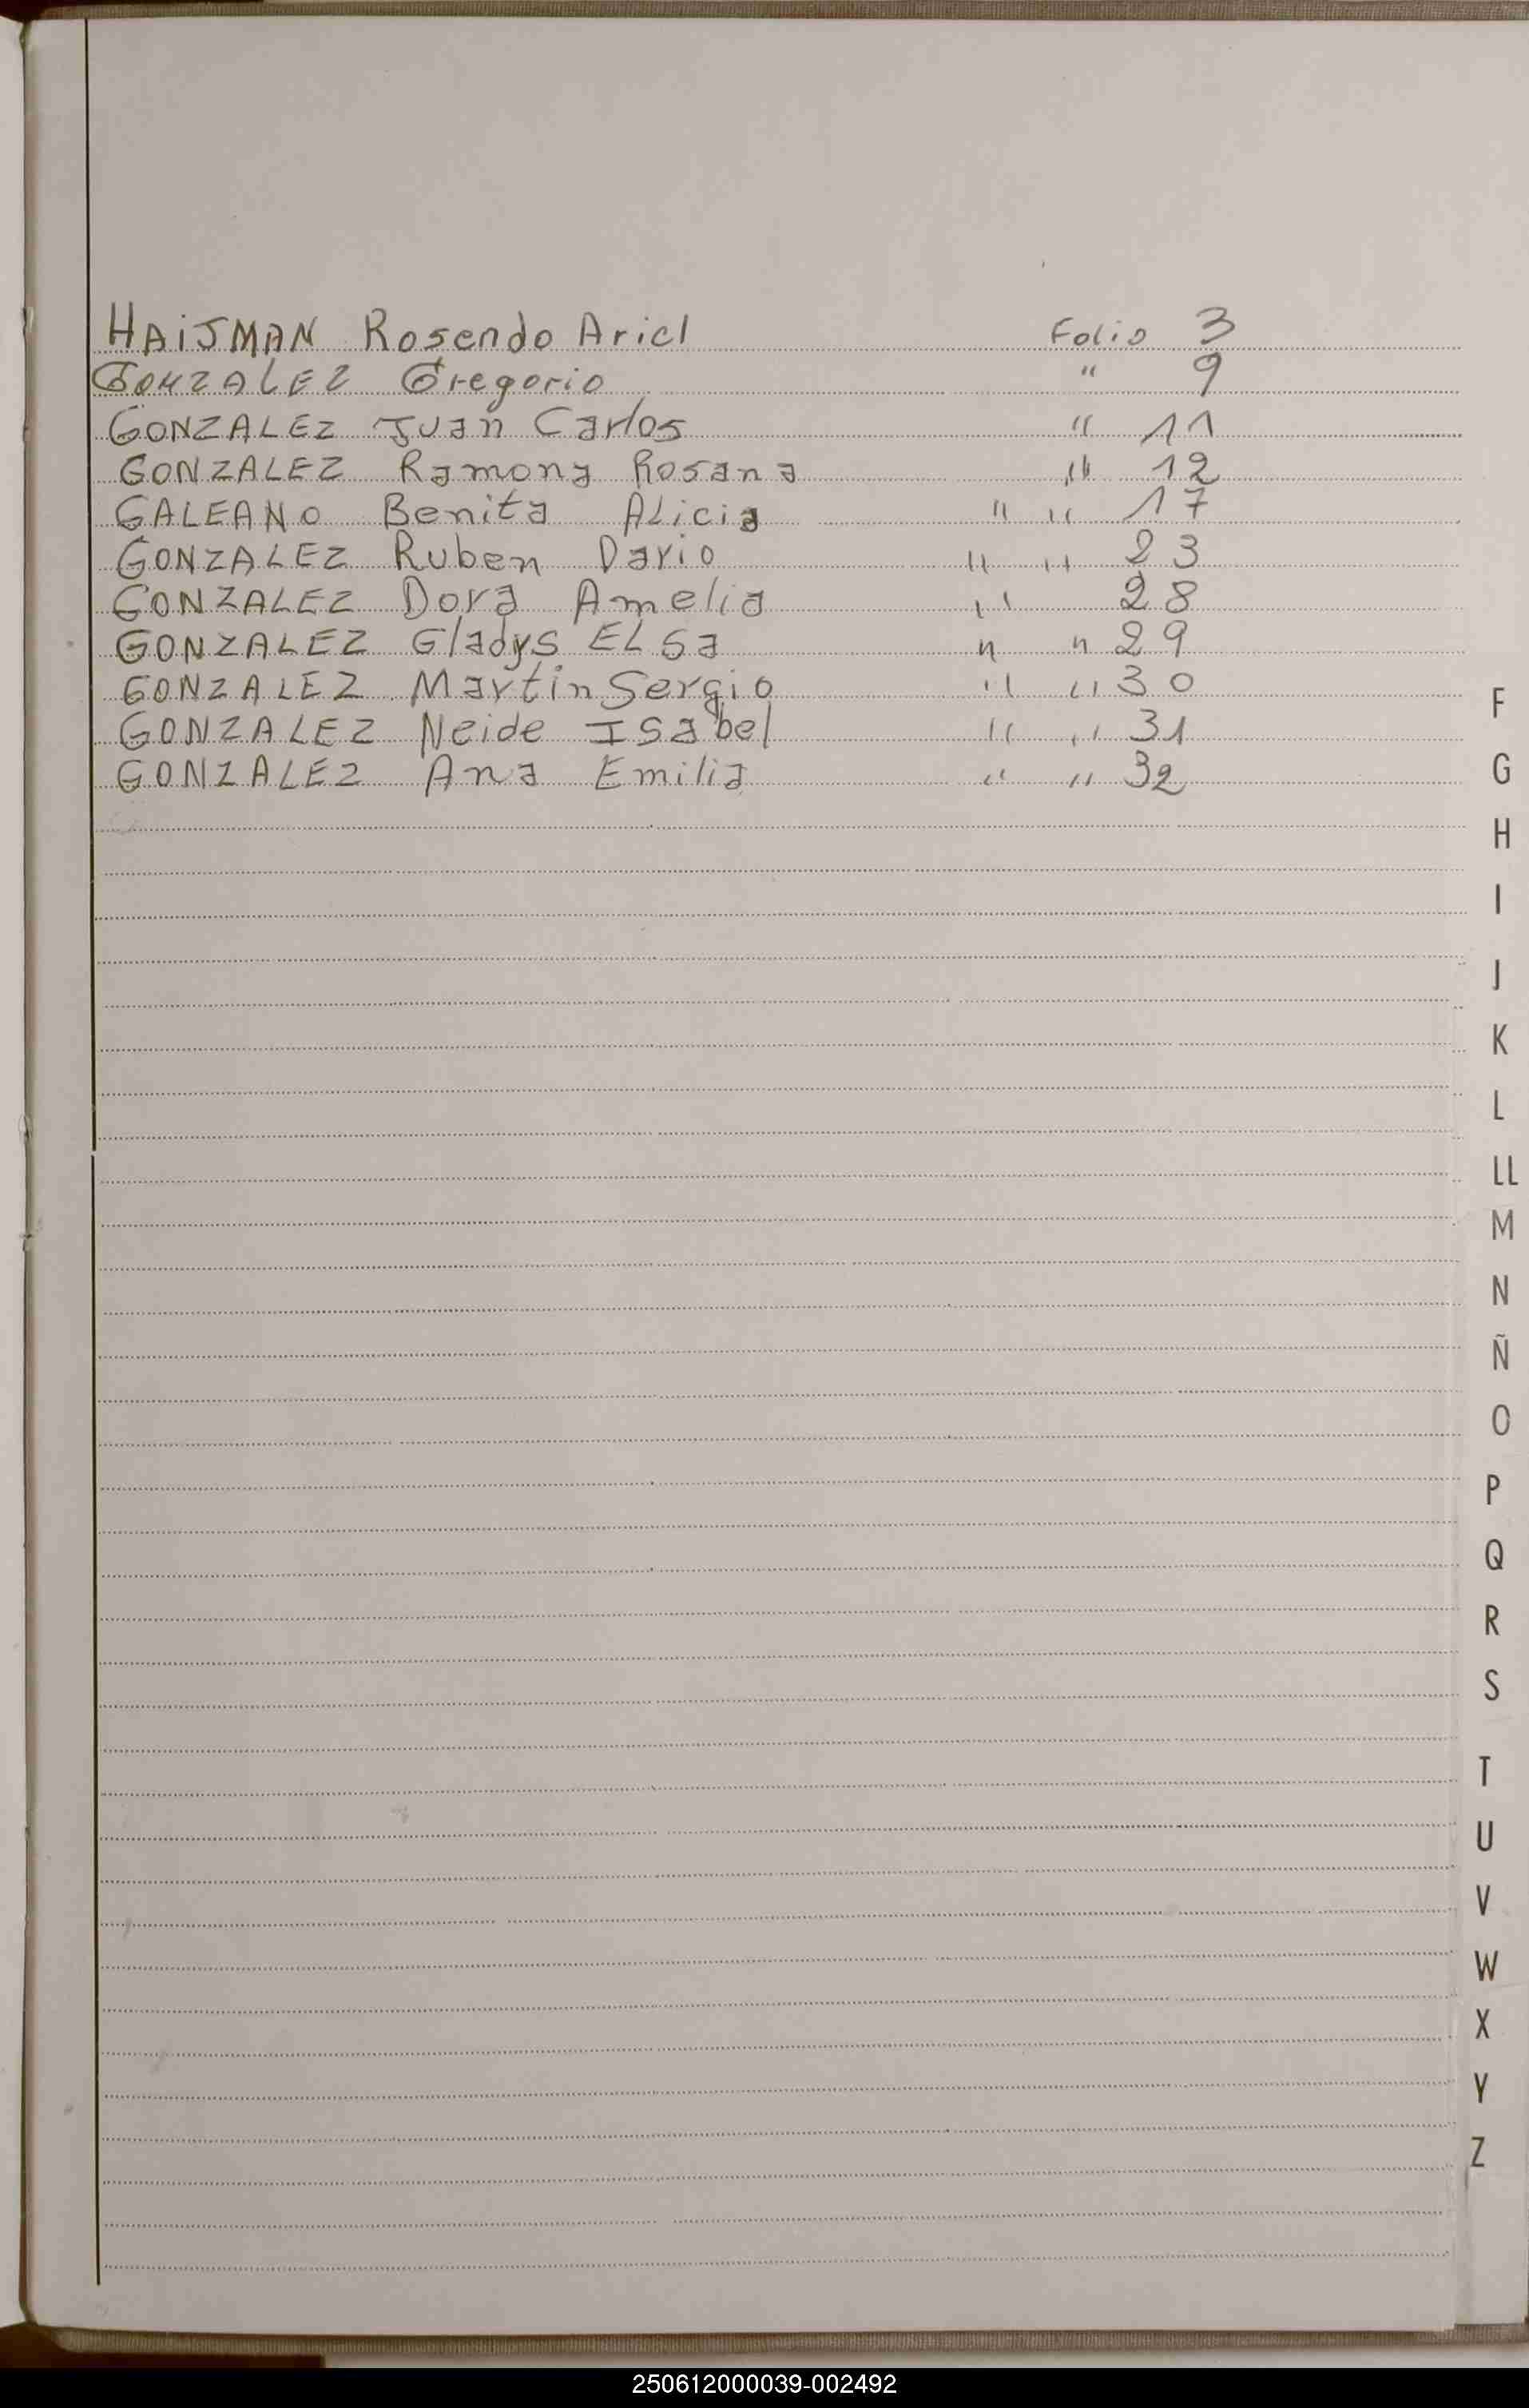 HAiJMAN Rosendo Ariel Folio 3
GONZALEZ Gregorio " 9
GONZALEZ Juan Carlos " 11
GONZALEZ Ramona Rosana " 12
GALEANO Benita Alicia " " 17
GONZALEZ Ruben Dario " " 23
GONZALEZ Dora Amelia " 28
GONZALEZ Gladys ELsa " " 29
GONZALEZ Martin Sergio " " 30
GONZALEZ Neide Isabel " " 31
GONZALEZ Ana Emilia " " 32
F
G
H
I
J
K
L
LL
M
N
Ñ
O
P
Q
R
S
T
U
V
W
X
Y
Z
250612000039-002492